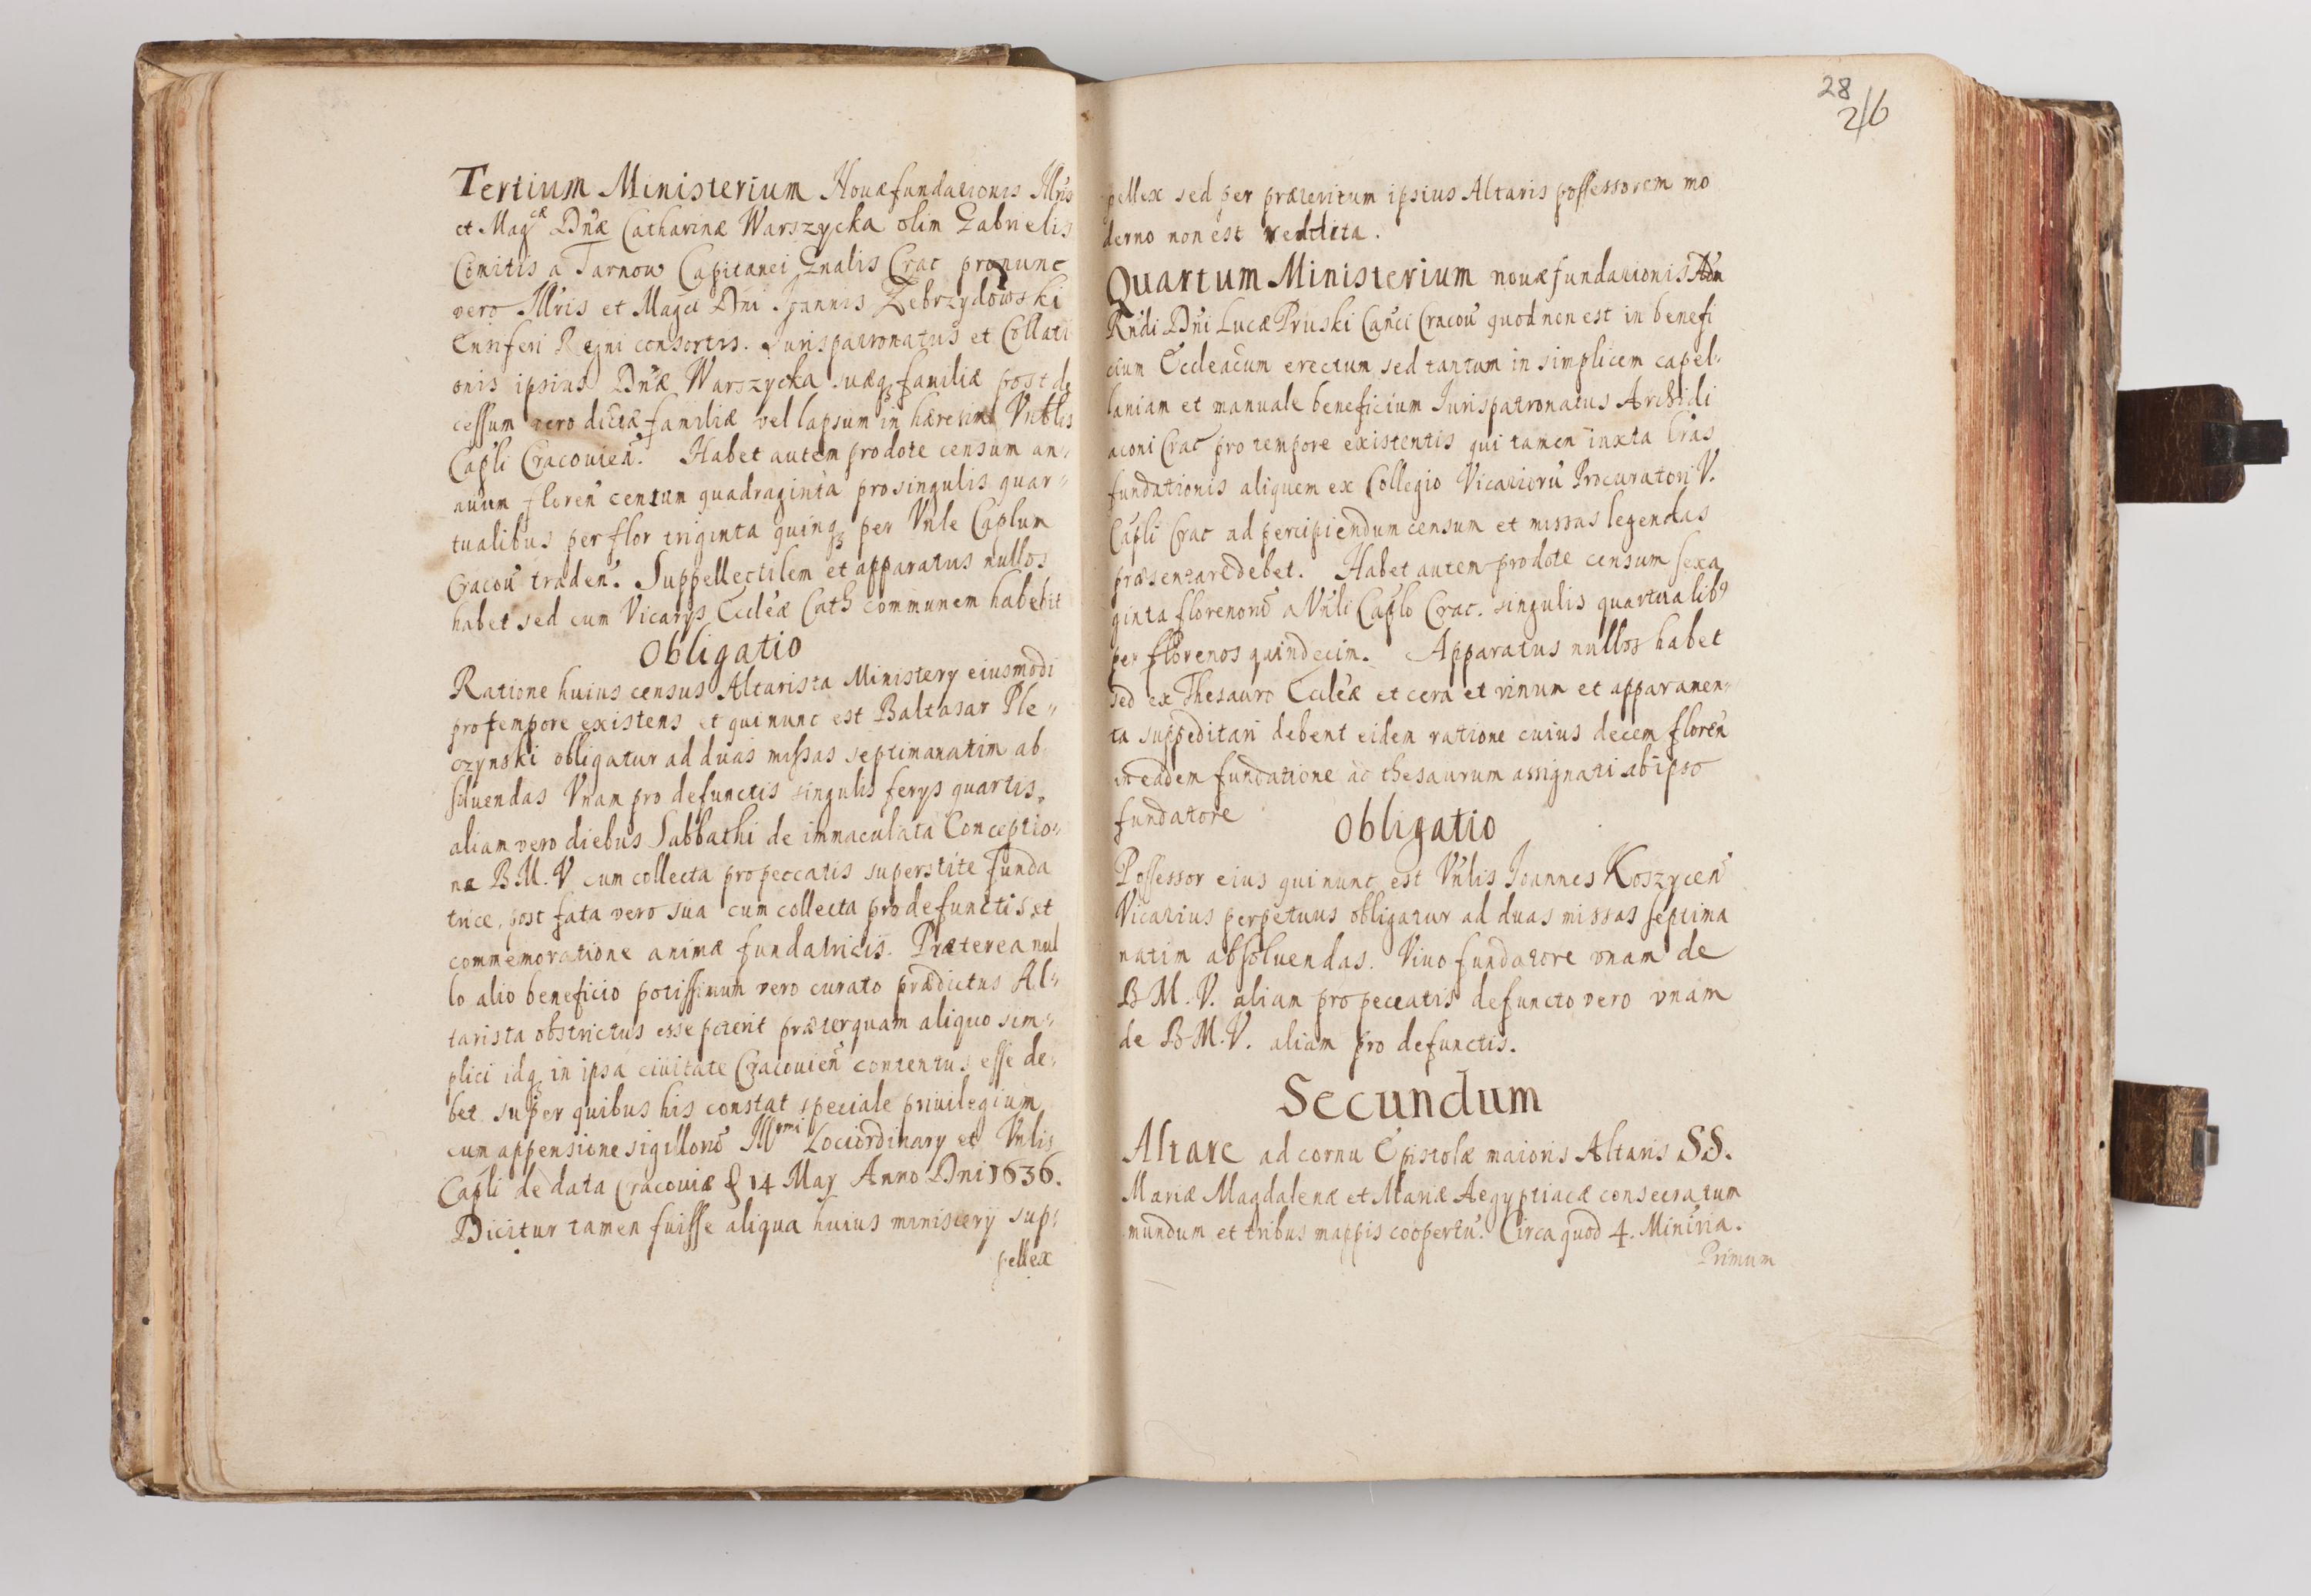 Tertium Ministerium Nouæ fundationis Illris
et Magcæ Dnæ Catharinæ Warszycka olim Gabrielis
Comitis a Tarnow Capitanei Gnalis Crac pro nunc
vero Illris et Magci Dni Joannis Zebrzydowski
Ensiferi Regni consortis. Jurispatronatus et Collati
onis ipsius Dnæ Warszycka suæq familiæ post de
cessum vero dictæ familiæ vel lapsum in hæresim Vnblis
Capli Cracouień. Habet autem pro dote censum an„
nuum floreń centum quadraginta pro singulis quar„
tualibus per flor triginta quinq per Vnle Caplum
Cracou traden. Suppellectilem et apparatus nullos
habet sed cum Vicarys Eccleæ Cath communem habebit
Obligatio
Ratione huius census Altarista Ministery eiusmodi
pro tempore existens et qui nunc est Baltasar Ple„
czynski obligatur ad duas missas septimanatim ab
soluendas Vnam pro defunctis singulis ferys quartis.
aliam vero diebus Sabbathi de immaculata Conceptio„
ne B.M.V. cum collecta pro peccatis superstite funda
trice, post fata vero sua cum collecta pro defunctis et
commemoratione animæ fundatricis. Præterea nul
lo alio beneficio potissimum vero curato prædictus Al„
tarista obstrictus esse poterit præterquam aliquo sim„
plici idq in ipsa ciuitate Cracouień contentus esse de„
bet super quibus his constat speciale priuilegium
cum appensione sigillorū Illrmi Loci ordinary et Vnlis
Capli de data Cracouiæ 14 May Anno Dni 1636.
Dicitur tamen fuisse aliqua huius ministerij sup„
pellex
28
26
pellex sed per præteritum ipsius Altaris possessorem mo
derno non est reddita.
Quartum Ministerium nouæ fundationis Adm
Rndi Dni Lucæ Pruski Canci Cracou quod non est in benefi
cium Eccleacum erectum sed tantum in simplicem capel„
laniam et manuale beneficium Jurispatronatus Archidi
aconi Crac pro tempore existentis qui tamen iuxta lras
fundationis aliquem ex Collegio Vicariorū Procuratori V.
Capli Crac ad percipiendum censum et missas legendas
præsentare debet. Habet autem pro dote censum sexa
ginta florenorū a Vnli Caplo Crac. singulis quartualib9
per florenos quindecim. Apparatus nullos habet
sed ex Thesauro Eccleæ et cera et vinum et apparamen„
ta suppeditari debent eidem ratione cuius decem floren
in eadem fundatione ad thesaurum assignati ab ipso
fundatore
Obligatio
Possessor eius qui nunc est Vnlis Joannes Koszyceń
Vicarius perpetuus obligatur ad duas missas septima
natim absoluendas. Viuo fundatore vnam de
B M. V. aliam pro peccatis defuncto vero vnam
de B M. V. aliam pro defunctis.
Secundum
Altare ad cornu Epistolæ maioris Altaris SS.
Mariæ Magdalenæ et Mariæ Aegyptiacæ consecratum
mundum et tribus mappis coopertū. Circa quod 4. Miniria.
Primum